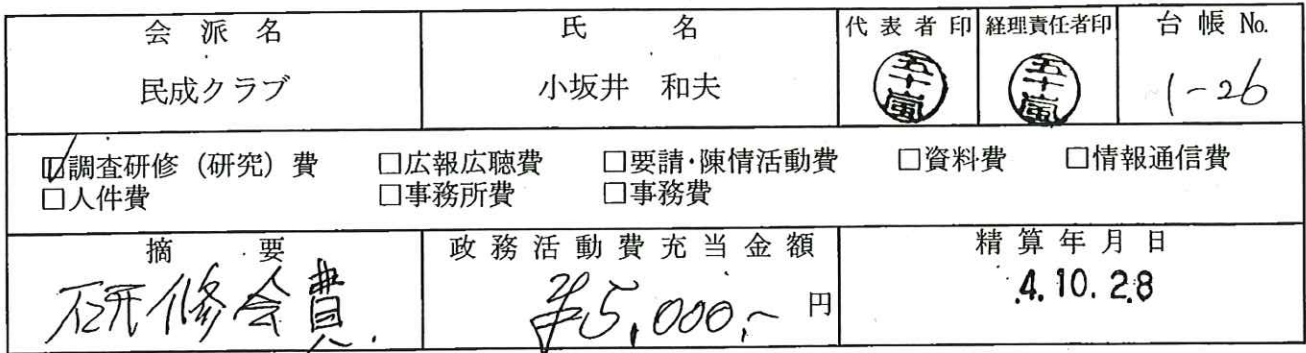 会派名 氏名 代表者印 経理責任者印 台帳No.
民成クラブ 小坂井 和夫 五十嵐 五十嵐 1-26
☑調査研修（研究）費 □広報広聴費 □要請・陳情活動費 □資料費 □情報通信費
□人件費 □事務所費 □事務費
摘要 政務活動費充当金額 精算年月日
研修会費. ¥5,000,- 円 4.10.28